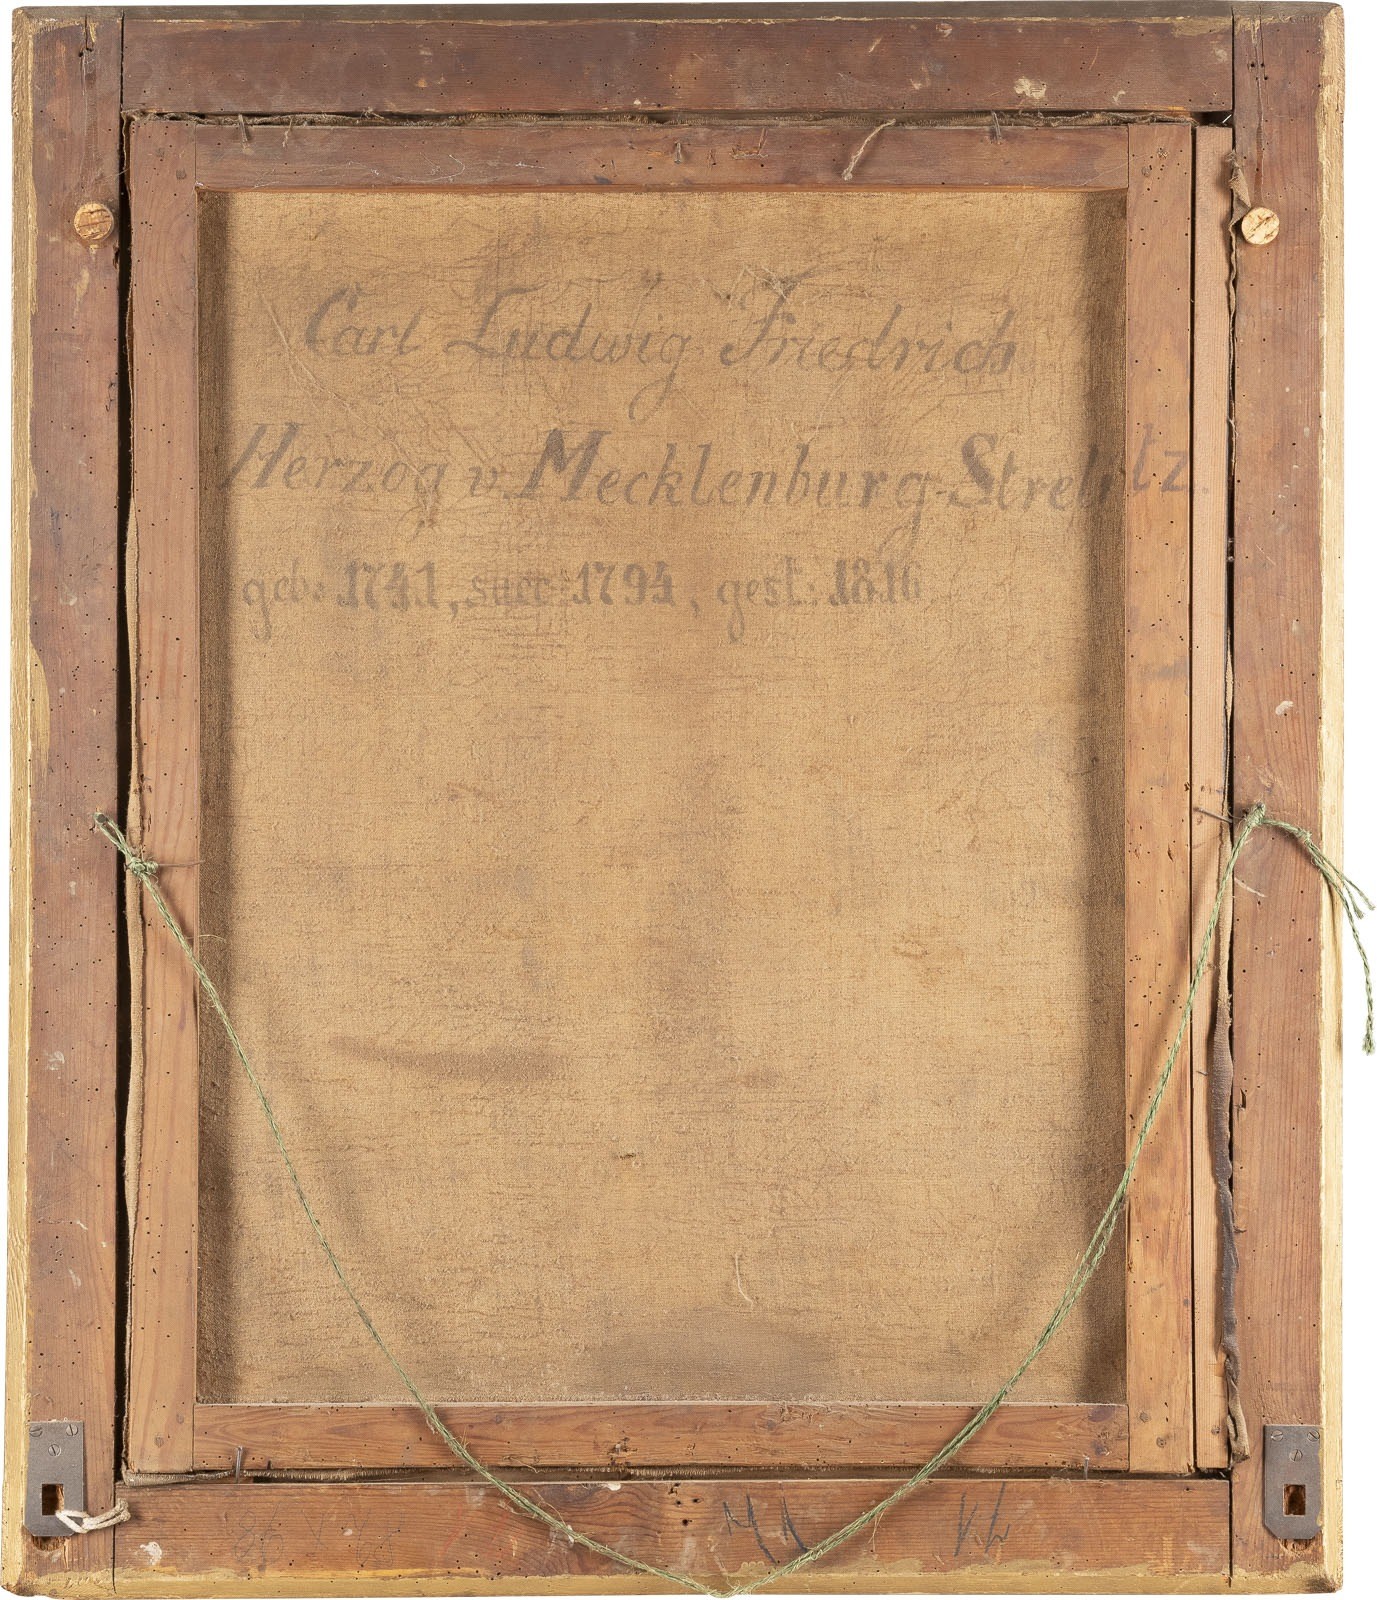 Carl Ludwig Friedrich
Herzog v. Mecklenburg-Strelitz.
geb: 1741, succ: 1794, gest: 1816